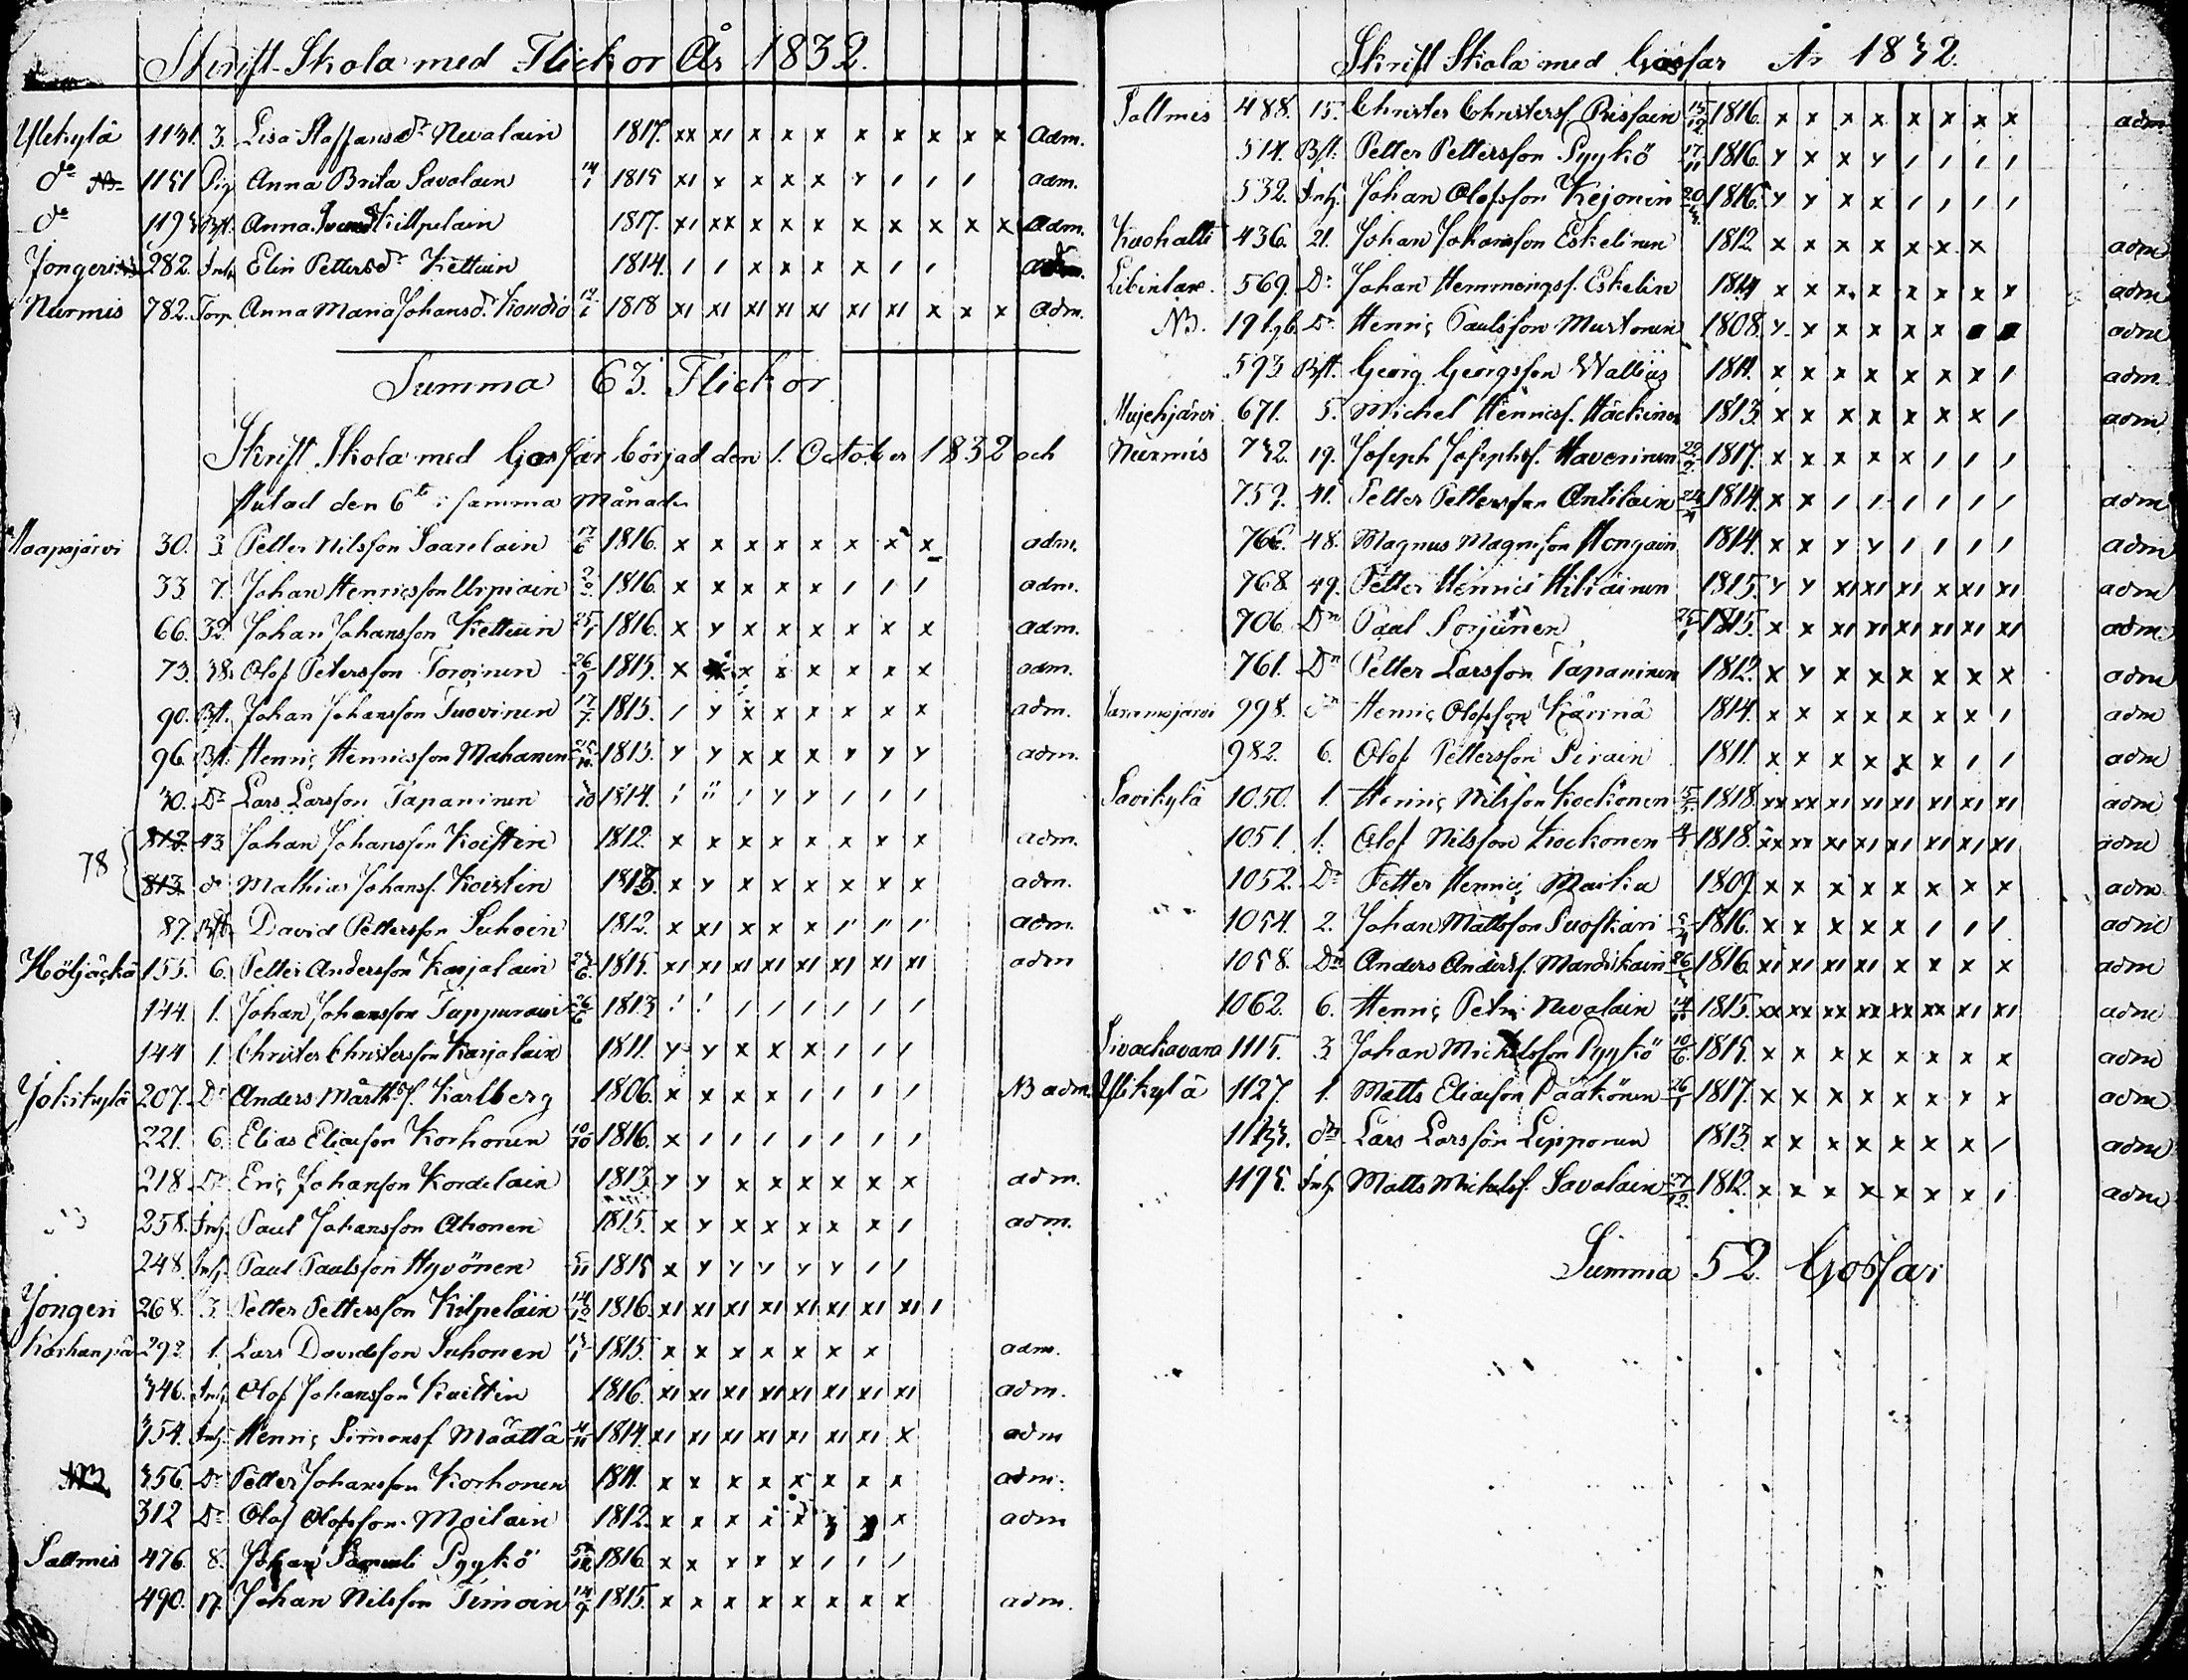 Skrift-Skola med Flickor År 1832.
Ylikylä 1131. 3. Lisa Staffansdr Nevalain 1817. xx xı x x x x x x x x adm.
do 1151 Pig. Anna Brita Savolain 14/1 1815 xı x x x x x ı ı ı adm.
do 1193 Bft. Anna Kilpelain 1817. xı xx x x x x x x x x adm.
Jongeri 282. Inh. Elin Pettersdr Kettuin 1814. ı ı x x x x ı ı adm.
Nurmis 782. Torp. Anna Maria Johansdr 1818 xı xı xı xı xı xı xı x x x adm.
Summa 63. Flickor
Skrift Skola med Gossar börjad den 1. October 1832 och
slutad den 6te i samma Månad
Haapajärvi 30. 3. Petter Nilsson Saarelain 17/6 1816. x x x x x x x x adm.
33 7. Johan Henricsson Urpiain 1816. x x x x x ı ı ı adm.
66. 32. Johan Johansson Kettuin 25/1 1816. x y x x x x x x adm.
73. 38. Olof Petersson Toroinen 1815. x x x x x x x adm.
90. Bft. Johan Johansson Tuovinen 17/7 1815. ı y x x x x x x adm.
96. Bft. Henric Henricsson Mahanen 1815. y y x x x y y y adm.
30. Dr Lars Larsson Tapaninen 1814. ı ıı ı y y ı ı ı
78 { 812. 43. Johan Johansson Koistin 1812. x x x x x x x x adm.
813. d Mathias Johansf. Koistin 1815. x y x x x x x x adm.
87. Bft. David Pettersson Suhoin 1812. x xı x x x ı ı ı adm.
Höljäckä 155. 6. Petter Andersson Karjalain 1815. xı xı xı xı xı xı xı xı adm
144. 1. Johan Johansson Tappurain 26/6 1813 ı ı ı ı ı ı ı ı
144 1. Christer Christersson Karjalain 1811. y y x x x ı ı ı
Jokikylä 207. Dr Anders Mårth:sf. Karlberg 1806. x x x x ı ı ı ı NB adm.
221. 6. Elias Eliasson Korhonen 10/10 1816. x ı ı ı ı ı ı ı
218. Dr Eric Johansson Kordelain 1813. y y x x x x x x adm.
258. Inh. Paul Johansson Ahonen 1815. x y x x x x x ı adm.
248. Inh. Paul Paulsson Hyvönen 5/11 1815 x y y y y y ı ı
Jongeri 268. 3. Petter Pettersson Kilpeläin 1816. xı xı xı xı xı xı xı xı ı
292. 1. Lars Davidsson Suhonen 1815. x x x x x x x adm.
346. Inh. Olof Johansson Kaittin 1816. xı xı xı xı xı xı xı xı adm.
354. Inh. Henric Simonsf. Määttä 1814. xı xı xı xı xı xı xı x adm
NB 356. Dr Petter Johansson Korhonen 1811. x x x x x x x x adm.
312 Dr Olof Olofsson Moilain 1812. x x x x x x x x adm
Saltmis 476. 8. Johan Samuels Pyykö 1816 x x x x x ı ı ı
490. 17. Johan Nilsson Timoin 14/9 1815. x x x x x x x x adm.
Skrift Skola med Gossar År 1832.
Saltmis 488. 15. Christer Christersf. Rissain 15/12 1816. x x x x x x x x adm
514. Bft. Petter Pettersson Pyykö 17/11 1816. y x x y ı ı ı ı
532. Inh. Johan Olofsson Kejonen 1816. y y x x ı ı ı ı
Kuohatti 436. 21. Johan Johansson Eskelinen 1812. x x x x x x x adm
569. Dr Johan Hemmingsf. Eskelin 1814 x x x x x x x x adm
NB. Dr Henric Paulsson Murtonen 1808. y x x x x x adm
593 Bft. Georg Georgsson Wallius 1811. x x x x x x x ı adm.
Mujejärvi 671. 5. Michel Henricsf. Häckinen 1813. x x x x x x x ı adm
Nurmis 732. 19. Joseph Josephsf. Haverinen 1817. x x x x x ı ı ı
759. 41. Petter Pettersson Antilain 1814. x x ı ı ı ı ı ı adm
766. 48. Magnus Magnisson Hongain 1814. x x y y ı ı ı ı adm
768 49. Petter Henrici Hiltuinen 1815. y y xı xı xı x xı xı adm
706 Dn Paul Sorjunen 1815. x x xı xı xı xı xı xı adm.
761. Dn Petter Larsson Tapaninen 1812. x y x x x x x x adm
998. dn Henric Olofsson Kärinä 1814. x x x x x x x ı adm
982. 6. Olof Pettersson Pirain 1811. x x x x x x ı ı adm
Savikylä 1050. 1. Henric Nilsson Kockonen 1818. xx xx xı xı xı xı xı xı adm
1051. 1. Olof Nilsson Kockonen 1818. xx xx xı xı xı xı xı xı adm
1052. Dr Petter Henrici Maika 1809. x x x x x x x x adm
1054. 2. Johan Mattsson Puoskari 1816. x x x x x ı ı ı adm
1058. Dn Anders Andersf. Mandskain 1816. xı xı xı xı x x x x adm
1062. 6. Henric Petri Nevalain 1815. xx xx xx xx xx xx xı xı adm
Sivackavara 1115. 3. Johan Michelsson Pyykö 10/6 1815. x x x x x x x x adm
Ylikylä 1127. 1. Matts Eliasson Pääkönen 26/1 1817. x x x x x x x x adm
dn Lars Larsson Lipponen 1813. x x x x x x x ı adm
1195. Inh. Matts Michelsf. Savolain 27/12 1812. x x x x x x x ı adm
Summa 52. Gossar